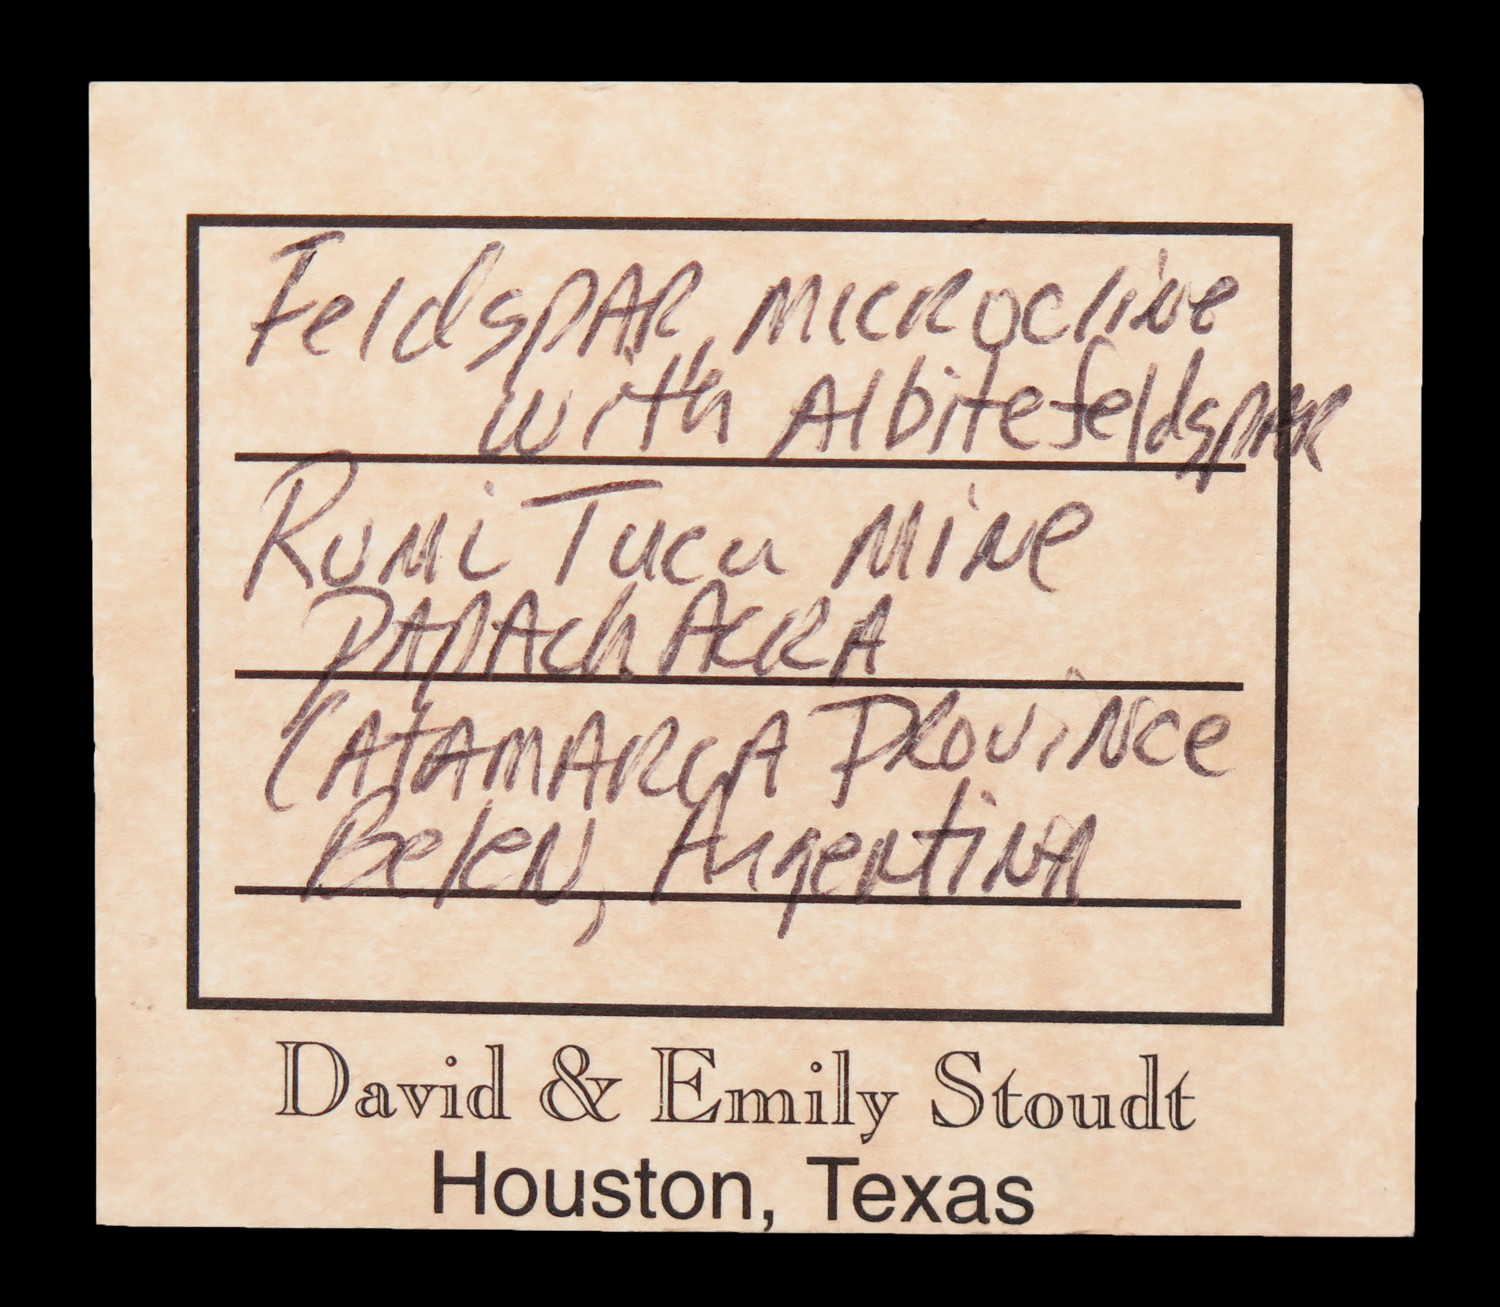 Feldspar, Microcline
with Albite feldspar
Rumi Tucu Mine
Papachacra
Catamarca Province
Belen, Argentina
David & Emily Stoudt
Houston, Texas